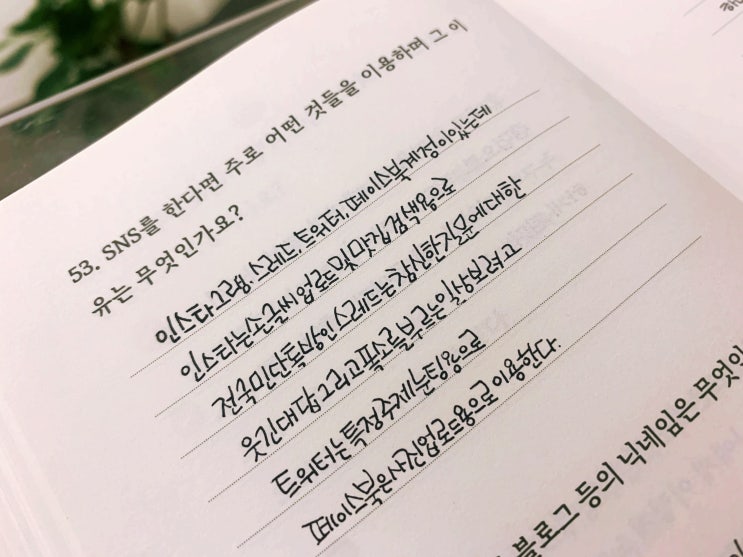 53. SNS를 한다면 주로 어떤 것들을 이용하며 그 이
유는 무엇인가요?
인스타그램, 스레드, 트위터, 페이스북 계정이 있는데
인스타는 손글씨 업로드 및 맛집 검색용으로
전국민 단톡방인 스레드는 참신한 질문에 대한
웃긴 대답 그리고 폭소를 부르는 일상 보려고
트위터는 특정주제 눈팅용으로
페이스북은 사진 업로드용으로 이용한다.
블로그 등의 닉네임은 무엇인